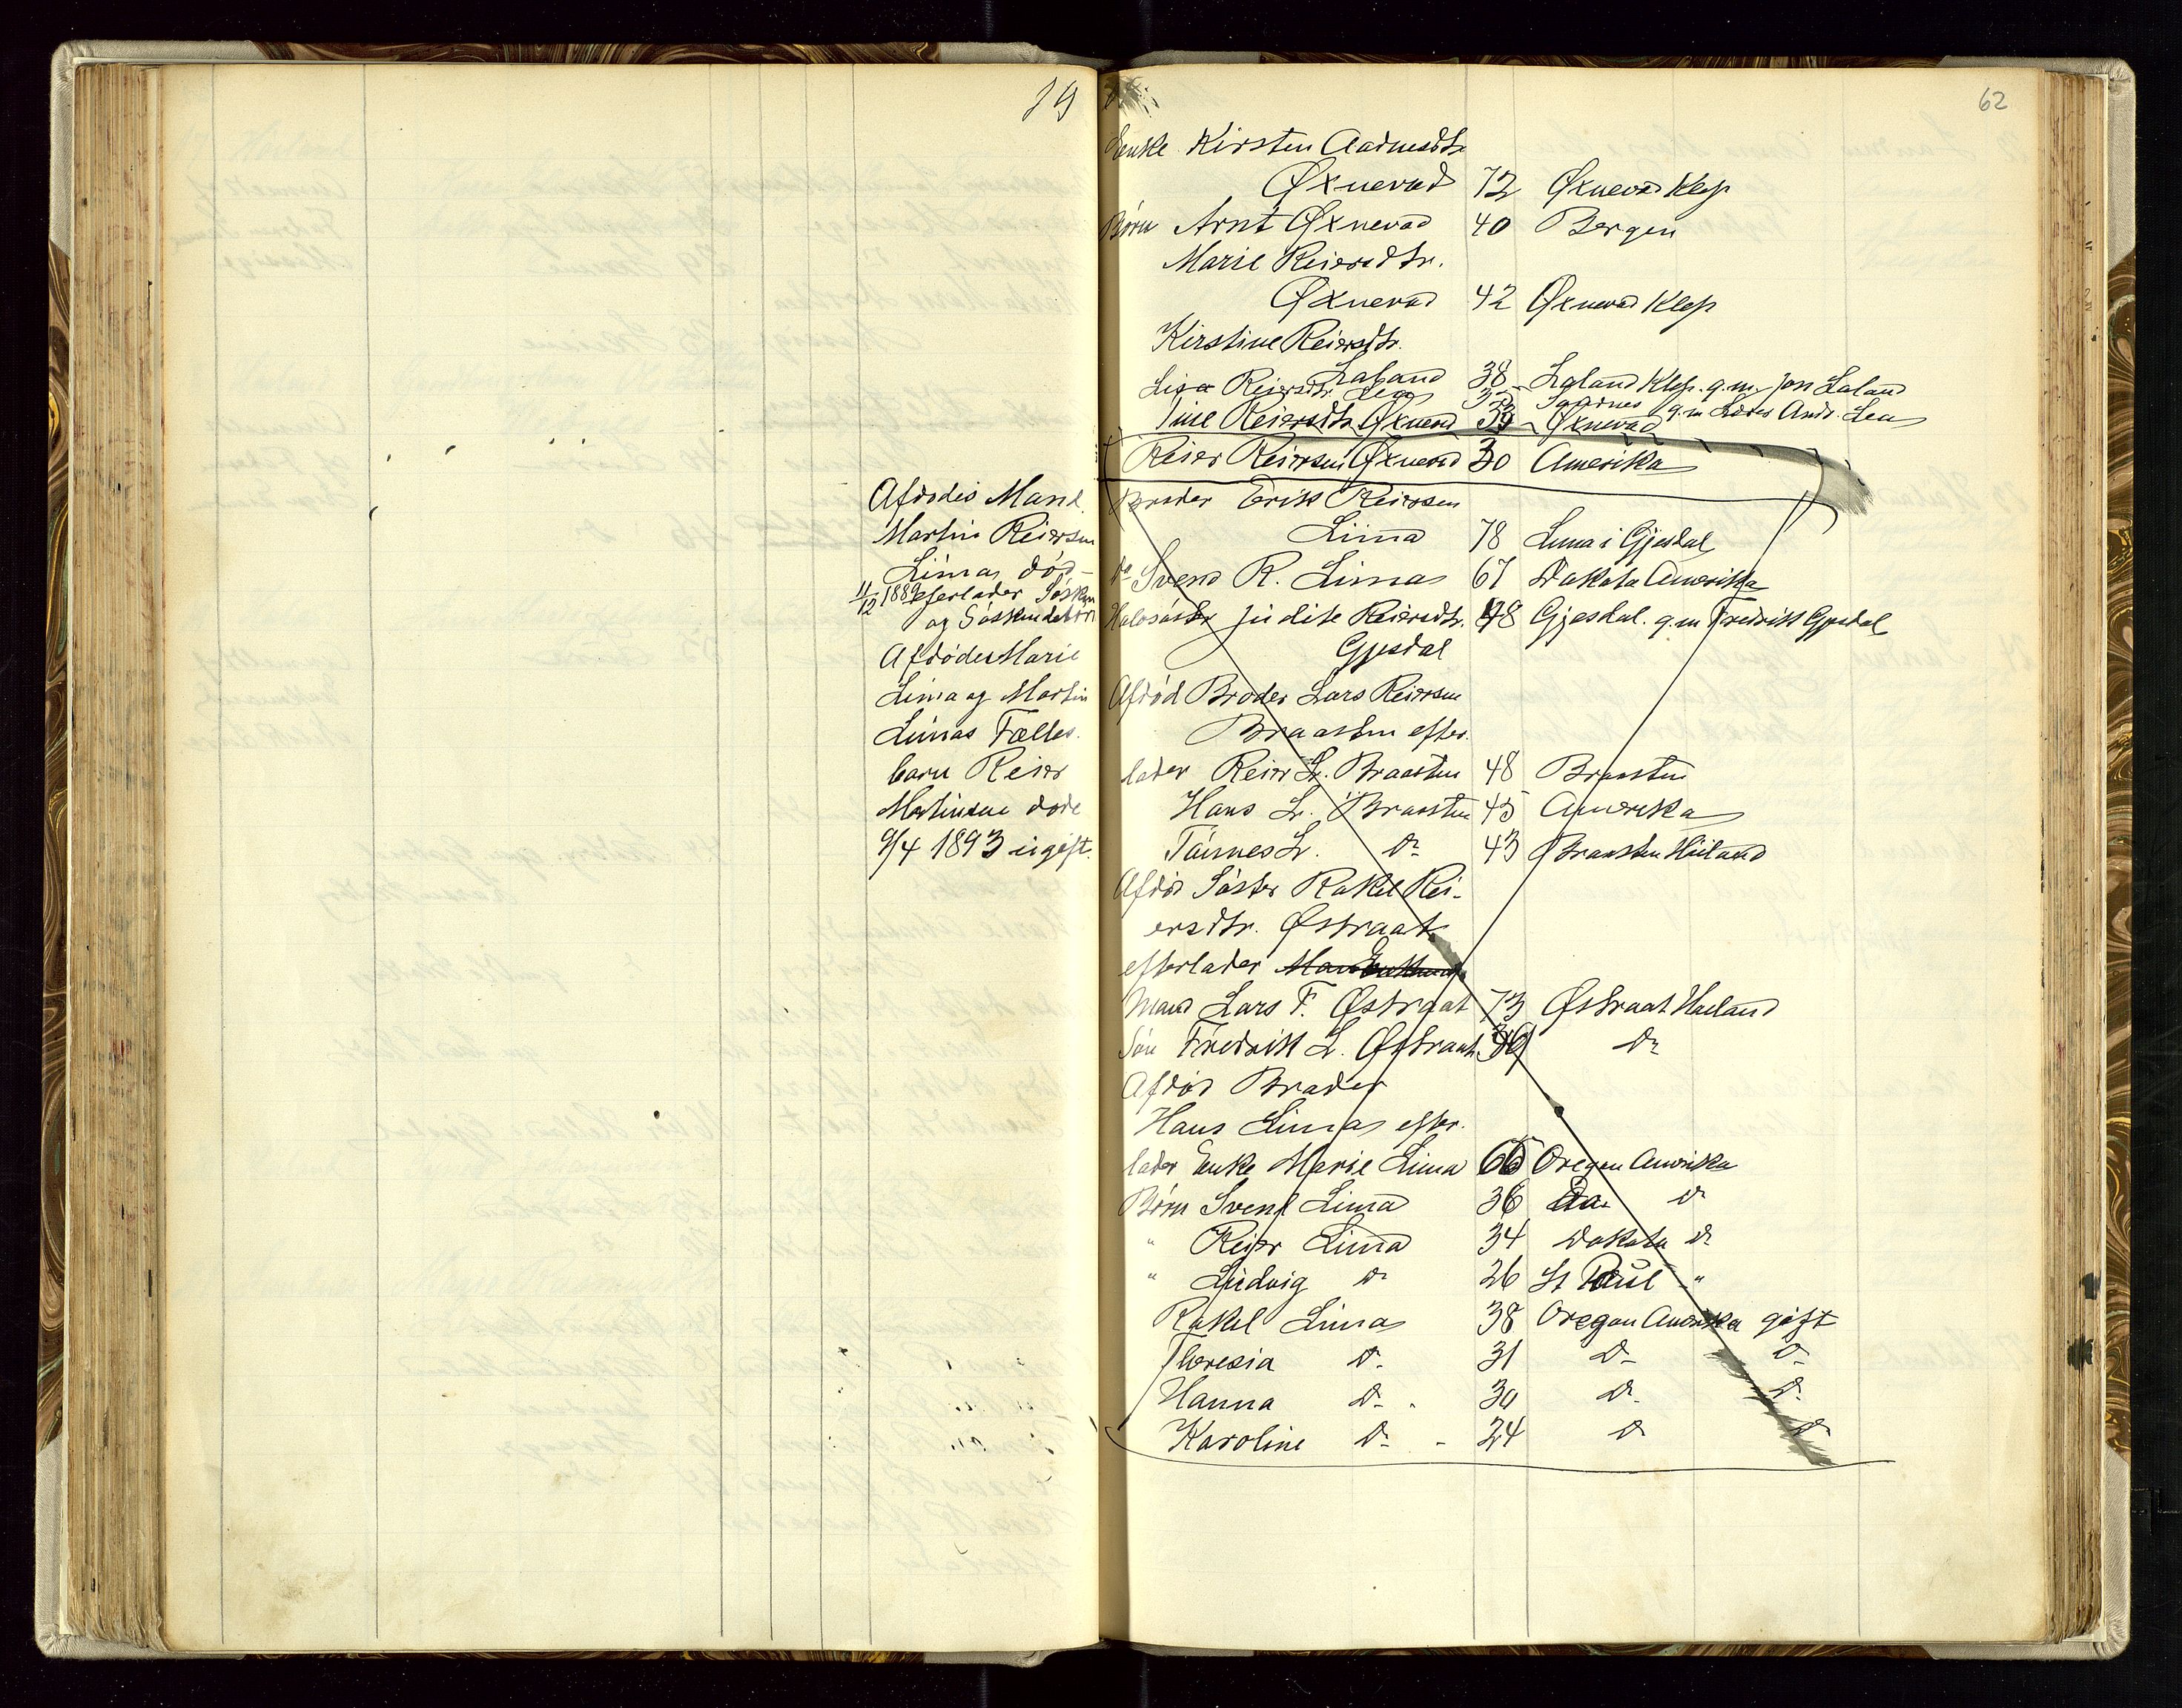 19
Afdødes Mand
Martin Reiersen
Limas død
11/12 1889 efterlader Søsken
og Søskendebørn
Afdødes Marie
Lima og Martin
Limas Fælles
barn Reier
Martinsen døde
9/4 1893 ugift.
62
Enke Kirsten Aadnesdtr
Øxnevad 72 Øxnevad Klep
Børn Arnt Øxnevad 40 Bergen
Marie Reiersdtr.
Øxnevad 42 Øxnevad Klep
Kirstine Reiersdtr.
Laland 38 Laland Klep. g.m. Jon Laland
Lisa Reiersdtr. Lea Sandnes g.m. Andr. Lea
Tine Reiersdtr. Øxnevad 33 Øxnevad
Reier Reiersen Øxnevad 30 Amerika
Broder Erik Reiersen
Lima 78 Lima i Gjesdal
do Svend R. Limas 67 Dakota Amerika
Halvsøster Judite Reiersdtr. 48 Gjesdal. g.m Fredrik Gjesdal
Gjesdal
Afdød Broder Lars Reiersen
Braasten efter-
lader Reier L. Braasten 48 Braasten
Hans L. Braasten 45 Amerika
Tønnes L. do 43 Braasten Høiland
Afdød Søster Rakel Rei-
ersdtr. Østraat
efterlader
Mand Lars F. Østraat 73 Østraat Høiland
Søn Fredrik L. Østraat 39 do
Afdød Broder
Hans Limas efter-
lader Enke Marie Lima 66 Oregon Amerika
Børn Svend Lima 36 do
" Reier Lima 34 Dakota do
" Ludvig do 26 St Paul "
Rakel Limas 38 Oregon Amerika gift
Theresia do 31 do do
Hanna do 30 do do
Karoline do 24 do do